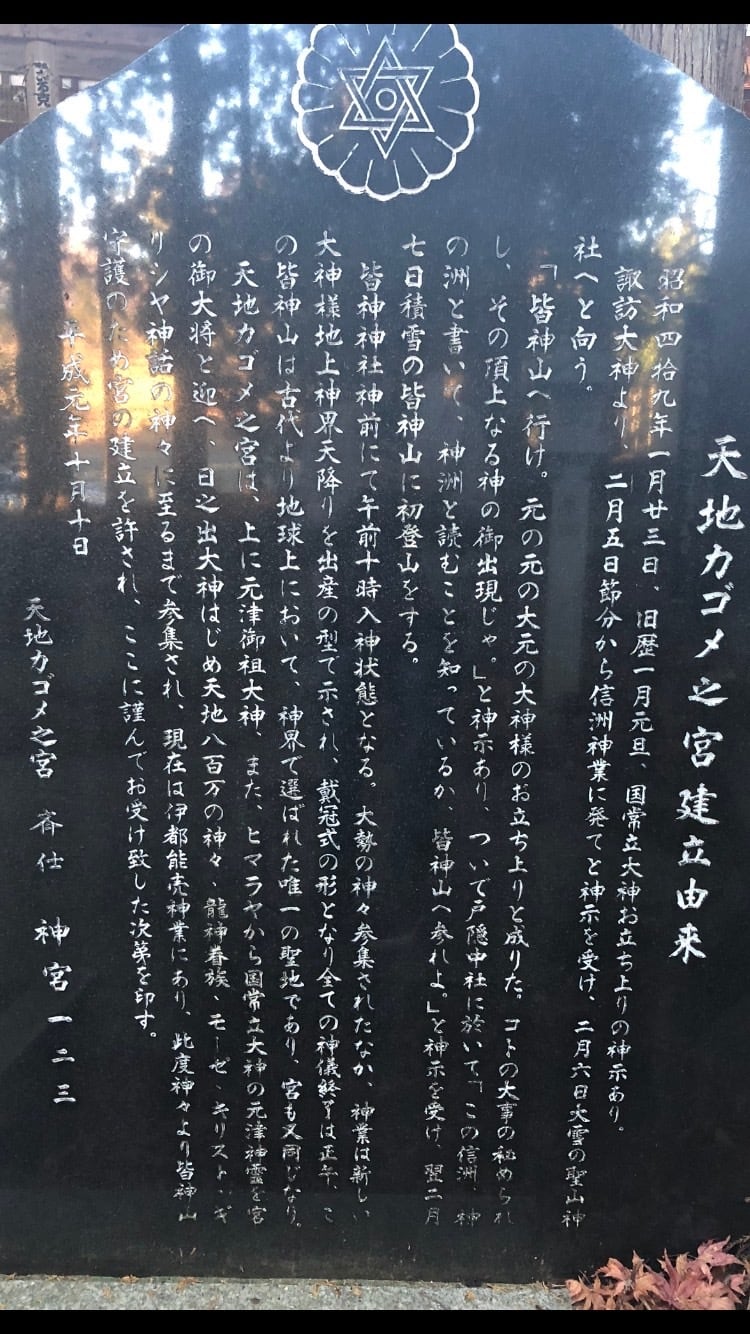 天地カゴメ之宮建立由来
昭和四拾九年一月廿三日、旧暦一月元旦、国常立大神お立ち上りの神示あり。
諏訪大神より、二月五日節分から信洲神業に発てと神示を受け、二月六日大雪の聖山神
社へと向う。
「皆神山へ行け。元の元の大元の大神様のお立ち上りと成りた。コトの大事の秘められ
し、その頂上なる神の御出現じゃ。」と神示あり、ついで戸隠中社に於いて「この信洲、神
の洲と書いて、神洲と読むことを知っているか、皆神山へ参れよ。」と神示を受け、翌二月
七日積雪の皆神山に初登山をする。
皆神神社神前にて午前十時入神状態となる。大勢の神々参集されたなか、神業は新しい
大神様地上神界天降りを出産の型で示され、戴冠式の形となり全ての神儀終了は正午、こ
の皆神山は古代より地球上において、神界で選ばれた唯一の聖地であり、宮も又同じなり。
天地カゴメ之宮は、上に元津御祖大神、また、ヒマラヤから国常立大神の元津神霊を宮
の御大将と迎へ、日之出大神はじめ天地八百万の神々、龍神眷族、モーゼ、キリスト、ギ
リシヤ神話の神々に至るまで参集され、現在は伊都能売神業にあり、此度神々より皆神山
守護のため宮の建立を許され、ここに謹んでお受け致した次第を印す。
平成元年十月十日
天地カゴメ之宮 斉仕 神宮一二三